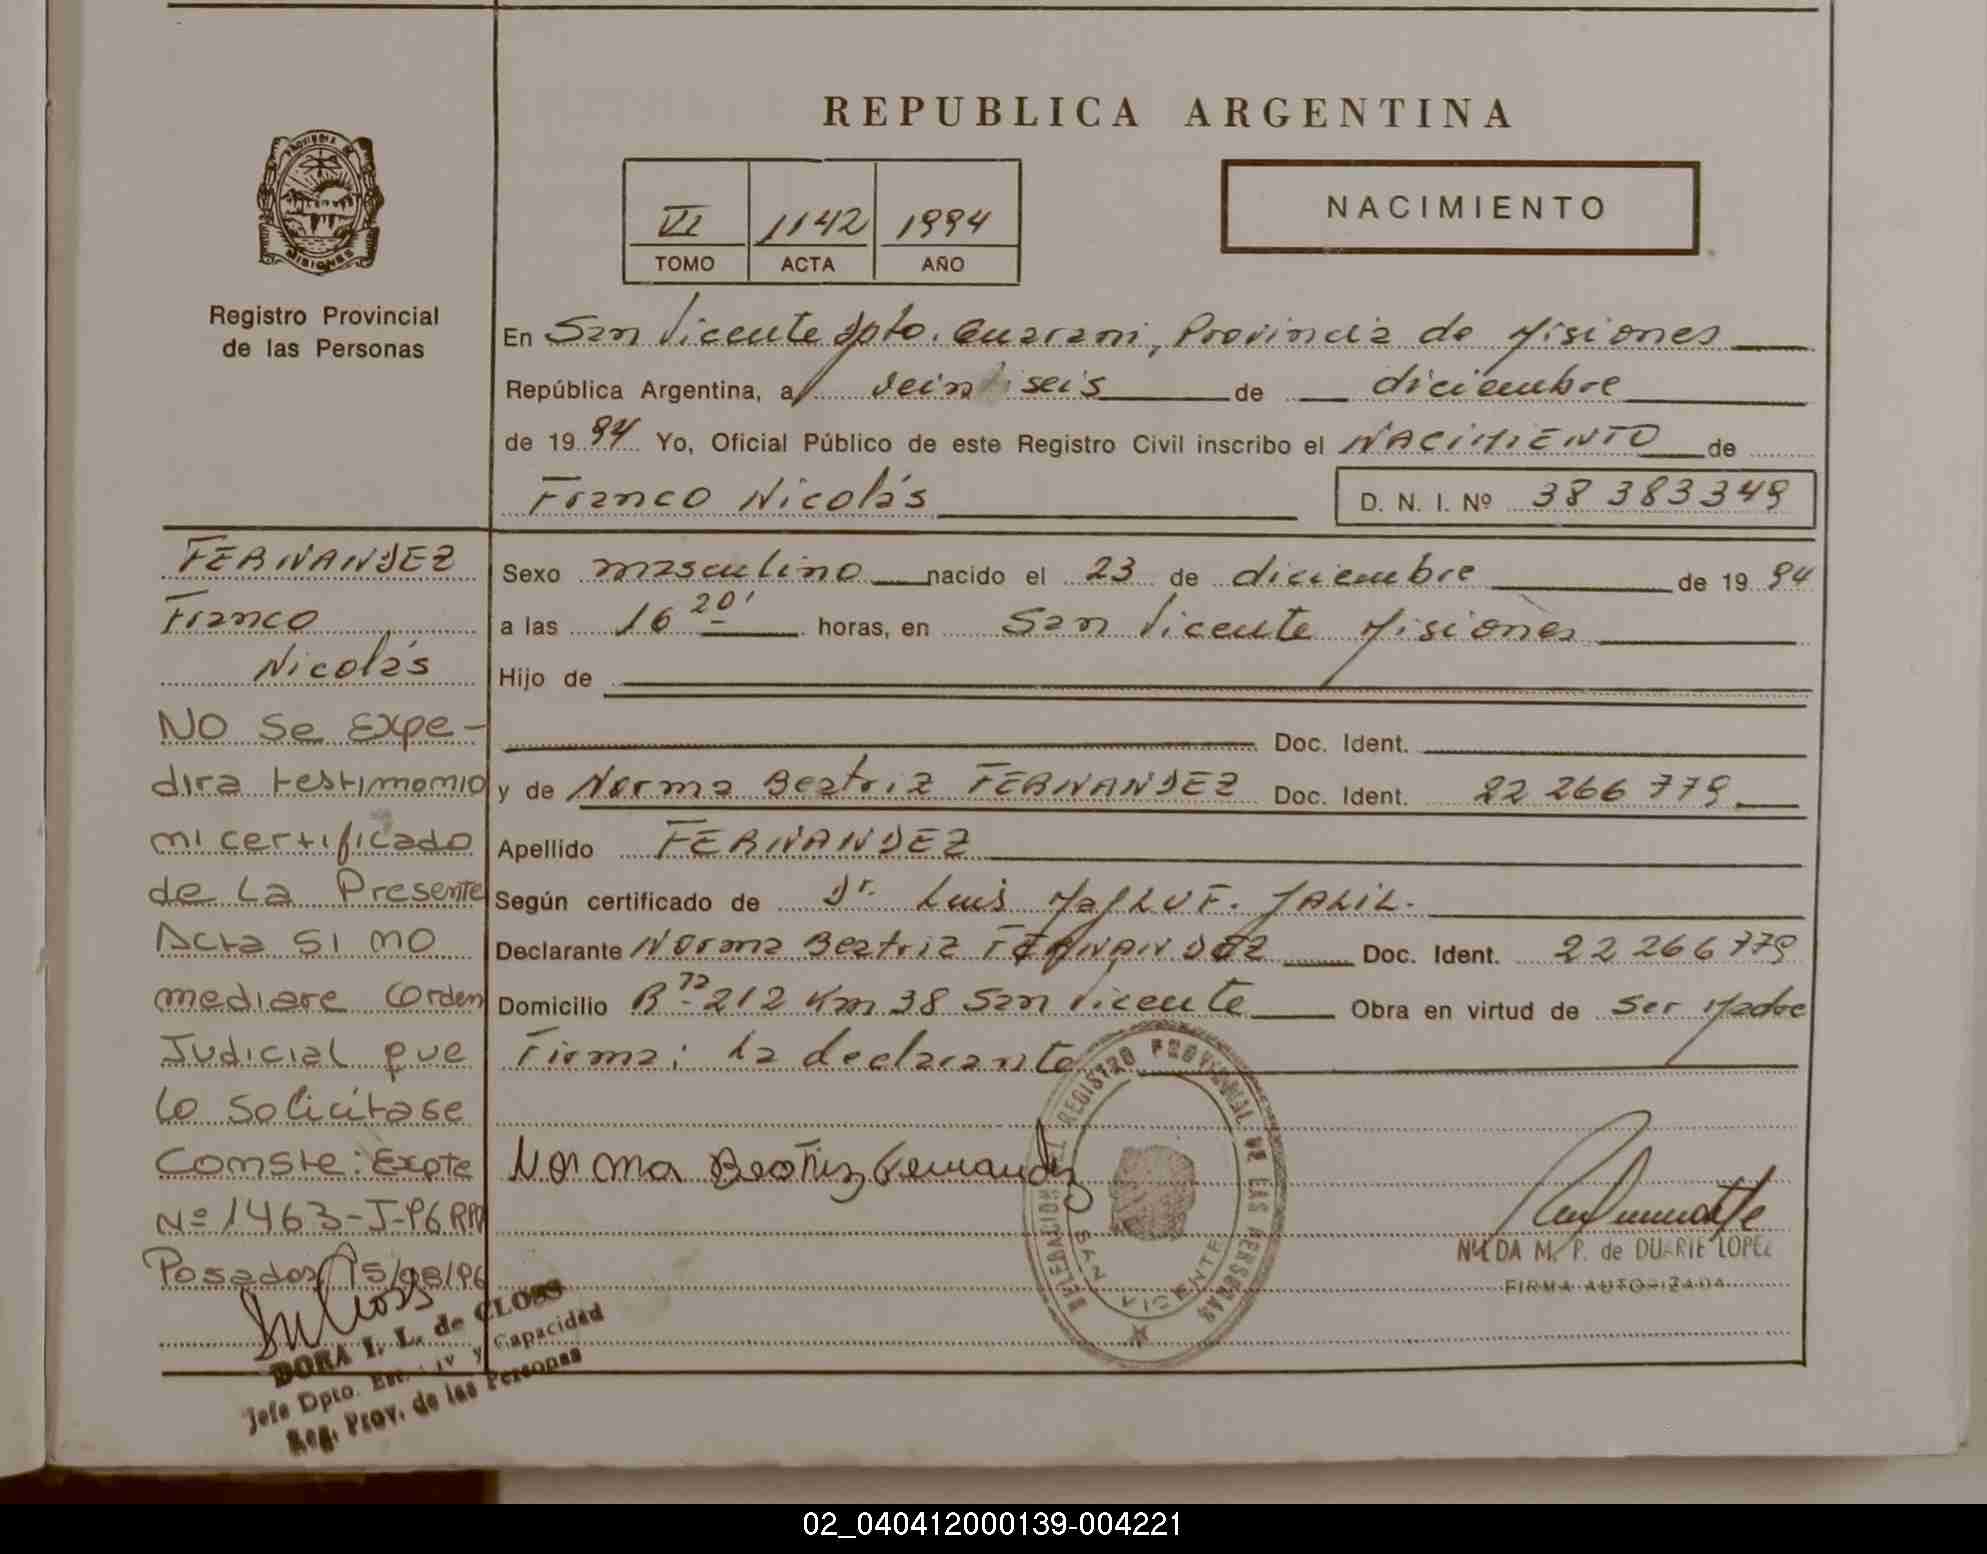 REPUBLICA ARGENTINA
PROVINCIA DE MISIONES
Registro Provincial
de las Personas
VI 1142 1994
TOMO ACTA AÑO
NACIMIENTO
En San Vicente Dpto. Guarani, Provincia de Misiones
República Argentina, a veintiseis de diciembre
de 1994 Yo, Oficial Público de este Registro Civil inscribo el NACIMIENTO de
Franco Nicolás D. N. I. Nº 38 383349
FERNANDEZ
Franco
Nicolás
NO Se Expe-
dira testimonio
ni certificado
de La Presente
Acta SI no
mediare Orden
Judicial que
Lo Solicitase
Conste: Expte
Nº 1463-J-96 RPP
Posadas 15/08/96
DORA I. L. de CLOSS
Jefe Dpto. Est. y Capacidad
Reg. Prov. de las Personas
Sexo masculino nacido el 23 de diciembre de 1994
a las 16 20' horas, en San Vicente Misiones
Hijo de
Doc. Ident.
y de Norma Beatriz FERNANDEZ Doc. Ident. 22 266 779
Apellido FERNANDEZ
Según certificado de Dr. Luis JALIL.
Declarante Norma Beatriz FERNANDEZ Doc. Ident. 22 266 779
Domicilio R 212 Km 38 San Vicente Obra en virtud de ser Madre
Firma: La declarante
Norma Beatriz Fernandez
DELEGACION DEL REGISTRO PROVINCIAL DE LAS PERSONAS
SAN VICENTE
NILDA M. P. de DUARTE LOPEZ
FIRMA AUTORIZADA
02_040412000139-004221